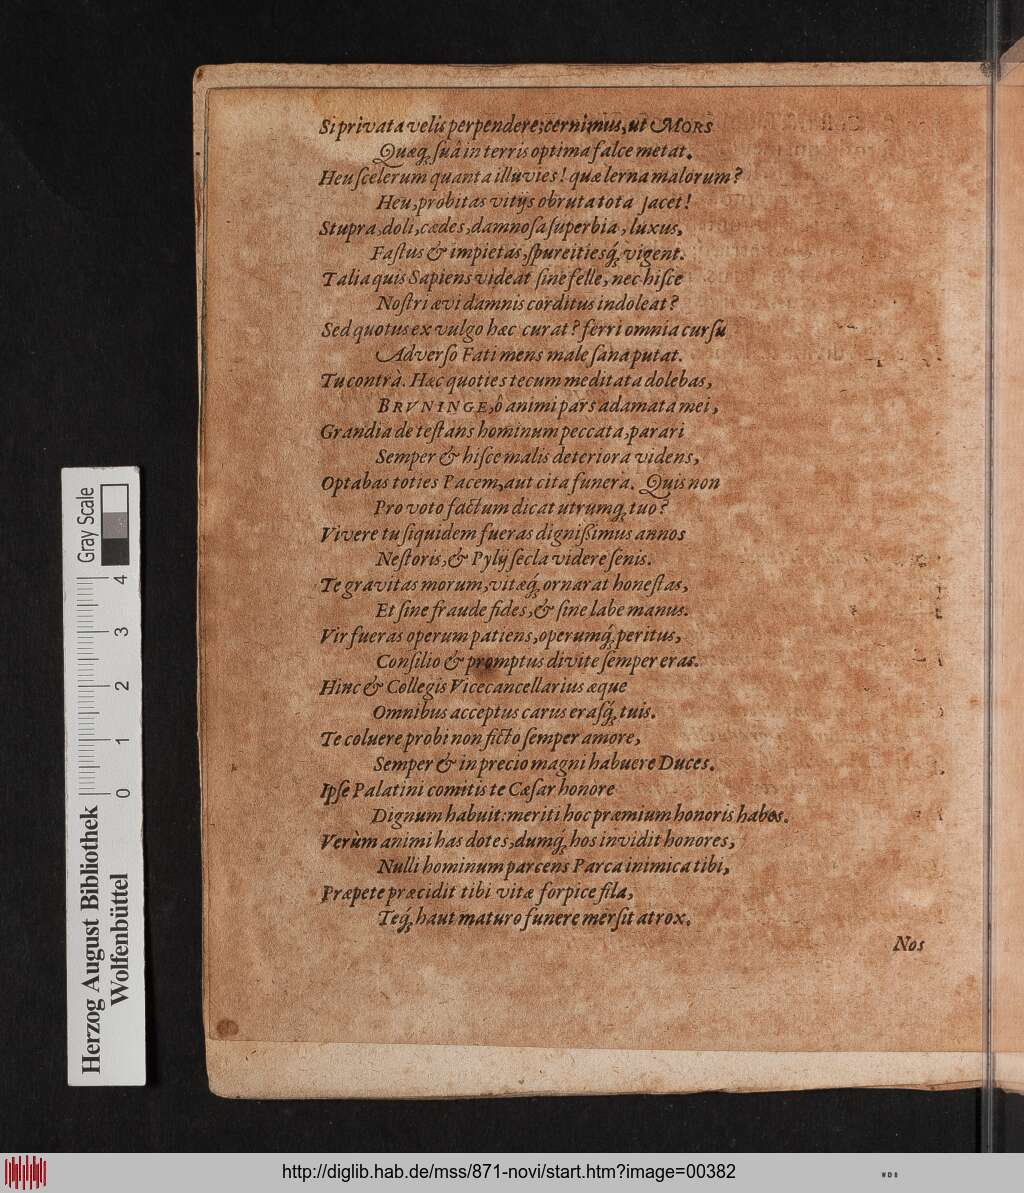 Si privata velis perpendere; cernimus, ut MORS
Quæq́ꝫ suâ in terris optima falce metat.
Heu scelerum quanta illuvies! quæ lerna malorum?
Heu, probitas vitijs obruta tota jacet!
Stupra, doli, cædes, damnosa superbia, luxus,
Fastus & impietas, spureitiesq́ꝫ vigent.
Talia quis Sapiens videat sine felle, nec hisce
Nostri ævi damnis corditus indoleat?
Sed quotus ex vulgo hæc curat? ferri omnia cursu
Adverso Fati mens male sana putat.
Tu contrà. Hæc quoties tecum meditata dolebas,
BRVNINGE, ô animi pars adamata mei,
Grandia detestans hominum peccata, parari
Semper & hisce malis deteriora videns,
Optabas toties Pacem, aut cita funera. Quis non
Pro voto factum dicat utrumq́ꝫ tuo?
Vivere tu siquidem fueras dignißimus annos
Nestoris, & Pylij secla videre senis.
Te gravitas morum, vitæq́ꝫ ornarat honestas,
Et sine fraude fides, & sine labe manus.
Vir fueras operum patiens, operumq́ꝫ peritus,
Consilio & promptus divite semper eras.
Hinc & Collegis Vicecancellarius æque
Omnibus acceptus carus erasq́ꝫ tuis.
Te coluere probi non ficto semper amore,
Semper & in precio magni habuere Duces.
Ipse Palatini comitis te Cæsar honore
Dignum habuit: meriti hoc præmium honoris habes.
Verùm animi has dotes, dumq́ꝫ hos invidit honores,
Nulli hominum parcens Parca inimica tibi,
Præpete præcidit tibi vitæ forpice fila,
Teq́ꝫ haut maturo funere mersit atrox.
Nos
Gray Scale
0 1 2 3 4
Herzog August Bibliothek
Wolfenbüttel
http://diglib.hab.de/mss/871-novi/start.htm?image=00382
WDB